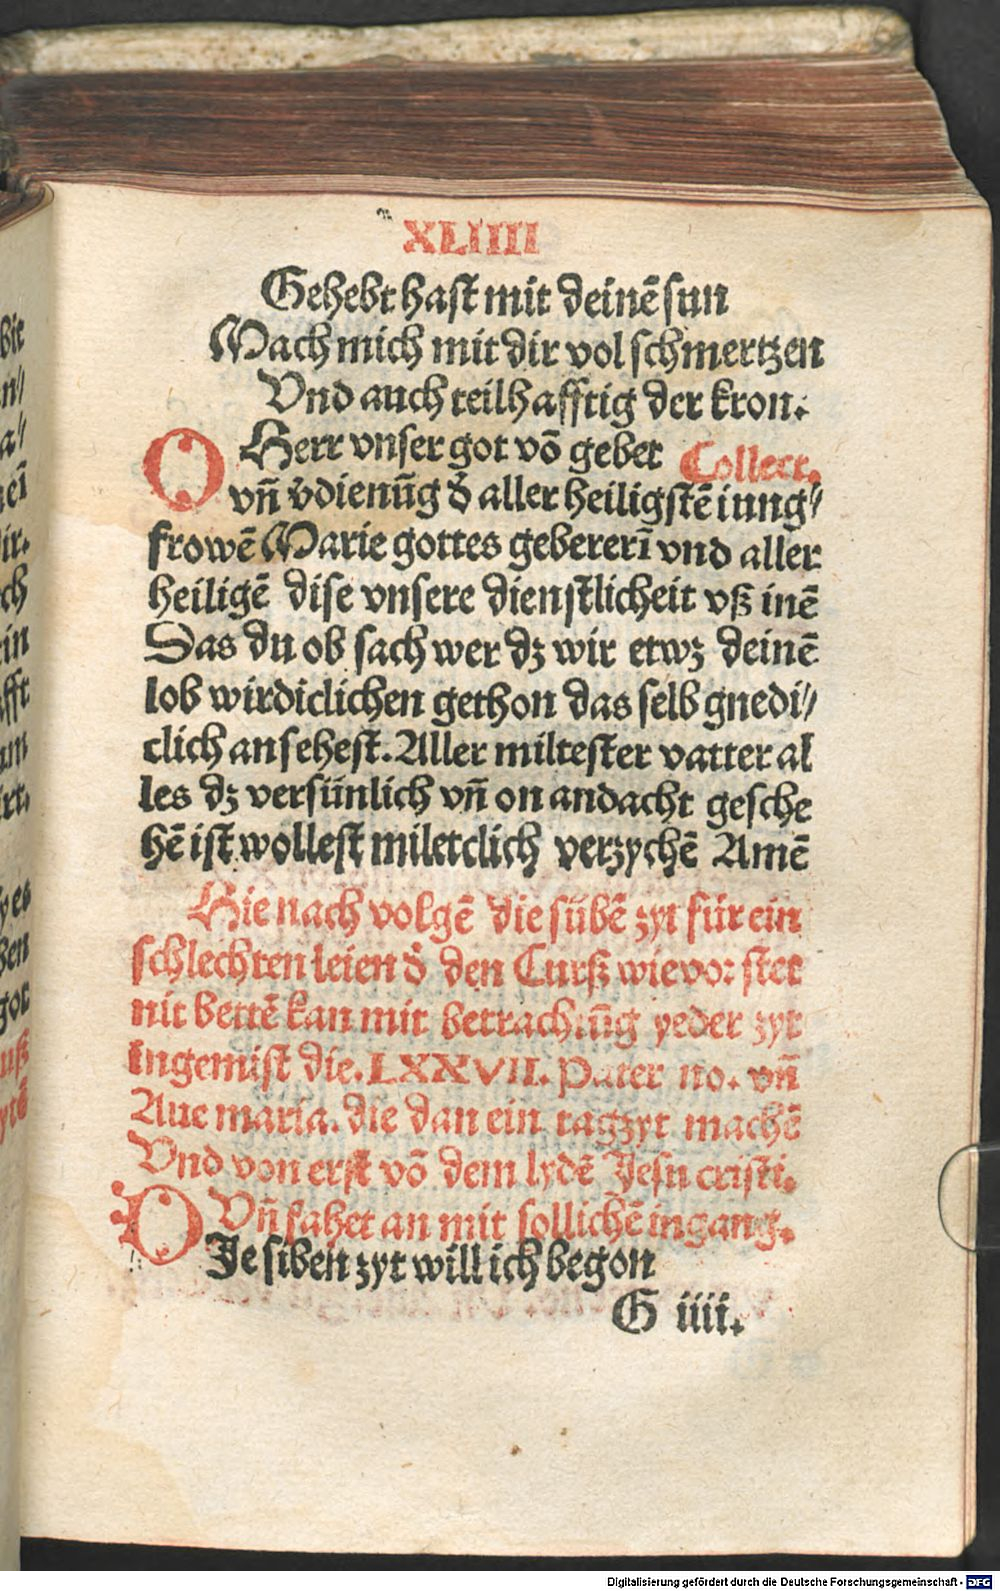 XLIIII
Gehebt hast mit deinē sun
Mach mich mit dir vol schmertzen
Vnd auch teilhafftig der kron.
O Herr vnser got vō gebet Collect.
vn̄ v̄dienūg d̄ aller heiligstē iung⸗
frowē Marie gottes gebererī vnd aller
heiligē dise vnsere dienstlicheit vß inē
Das du ob sach wer dz wir etwz deinē
lob wirdiclichen gethon das selb gnedi⸗
clich ansehest. Aller miltester vatter al
les dz versünlich vn̄ on andacht gesche
hē ist wollest miletclich verzychē Amē
Hie nach volgē die sübē zyt für ein
schlechten leien d̄ den Curß wie vor stet
nit bettē kan mit betrachtūg yeder zyt
Ingemist die. LXXVII. Pater no. vn̄
Aue maria. die dan ein tagzyt machē
Vnd von erst vō dem lydē Jesu cristi.
Vn̄ fahet an mit sollichē ingang.
DJe siben zyt will ich begon
G iiii.
bit
n⸗
a⸗
zeī
ir.
ch
in
afft
um
irt.
yes
ben
got
uß
ytē
Digitalisierung gefördert durch die Deutsche Forschungsgemeinschaft - DFG